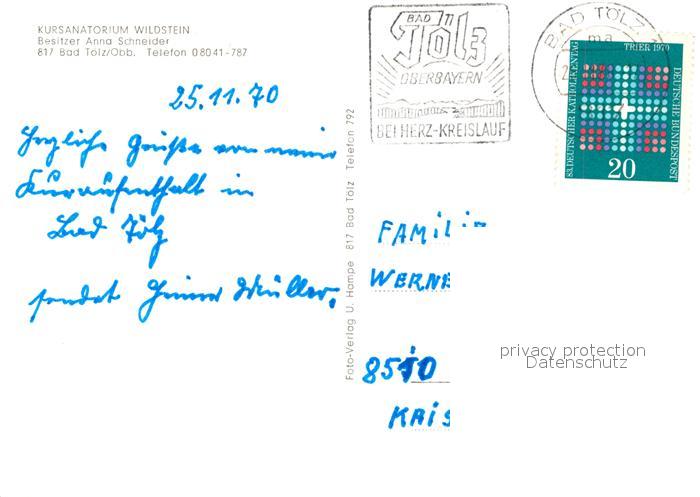 KURSANATORIUM WILDSTEIN
Besitzer Anna Schneider
817 Bad Tölz/Obb. Telefon 08041-787
25.11.70
Herzliche Grüße von meinem
Kuraufenthalt in
Bad Tölz
sendet Müller.
Foto-Verlag U. Hampe 817 Bad Tölz Telefon 792
BAD
Tölz
OBERBAYERN
BEI HERZ-KREISLAUF
BAD TÖLZ 1
ma
TRIER 1970
83. DEUTSCHER KATHOLIKENTAG
DEUTSCHE BUNDESPOST
20
FAMILI
WERNE
8510
KAIS
privacy protection
Datenschutz